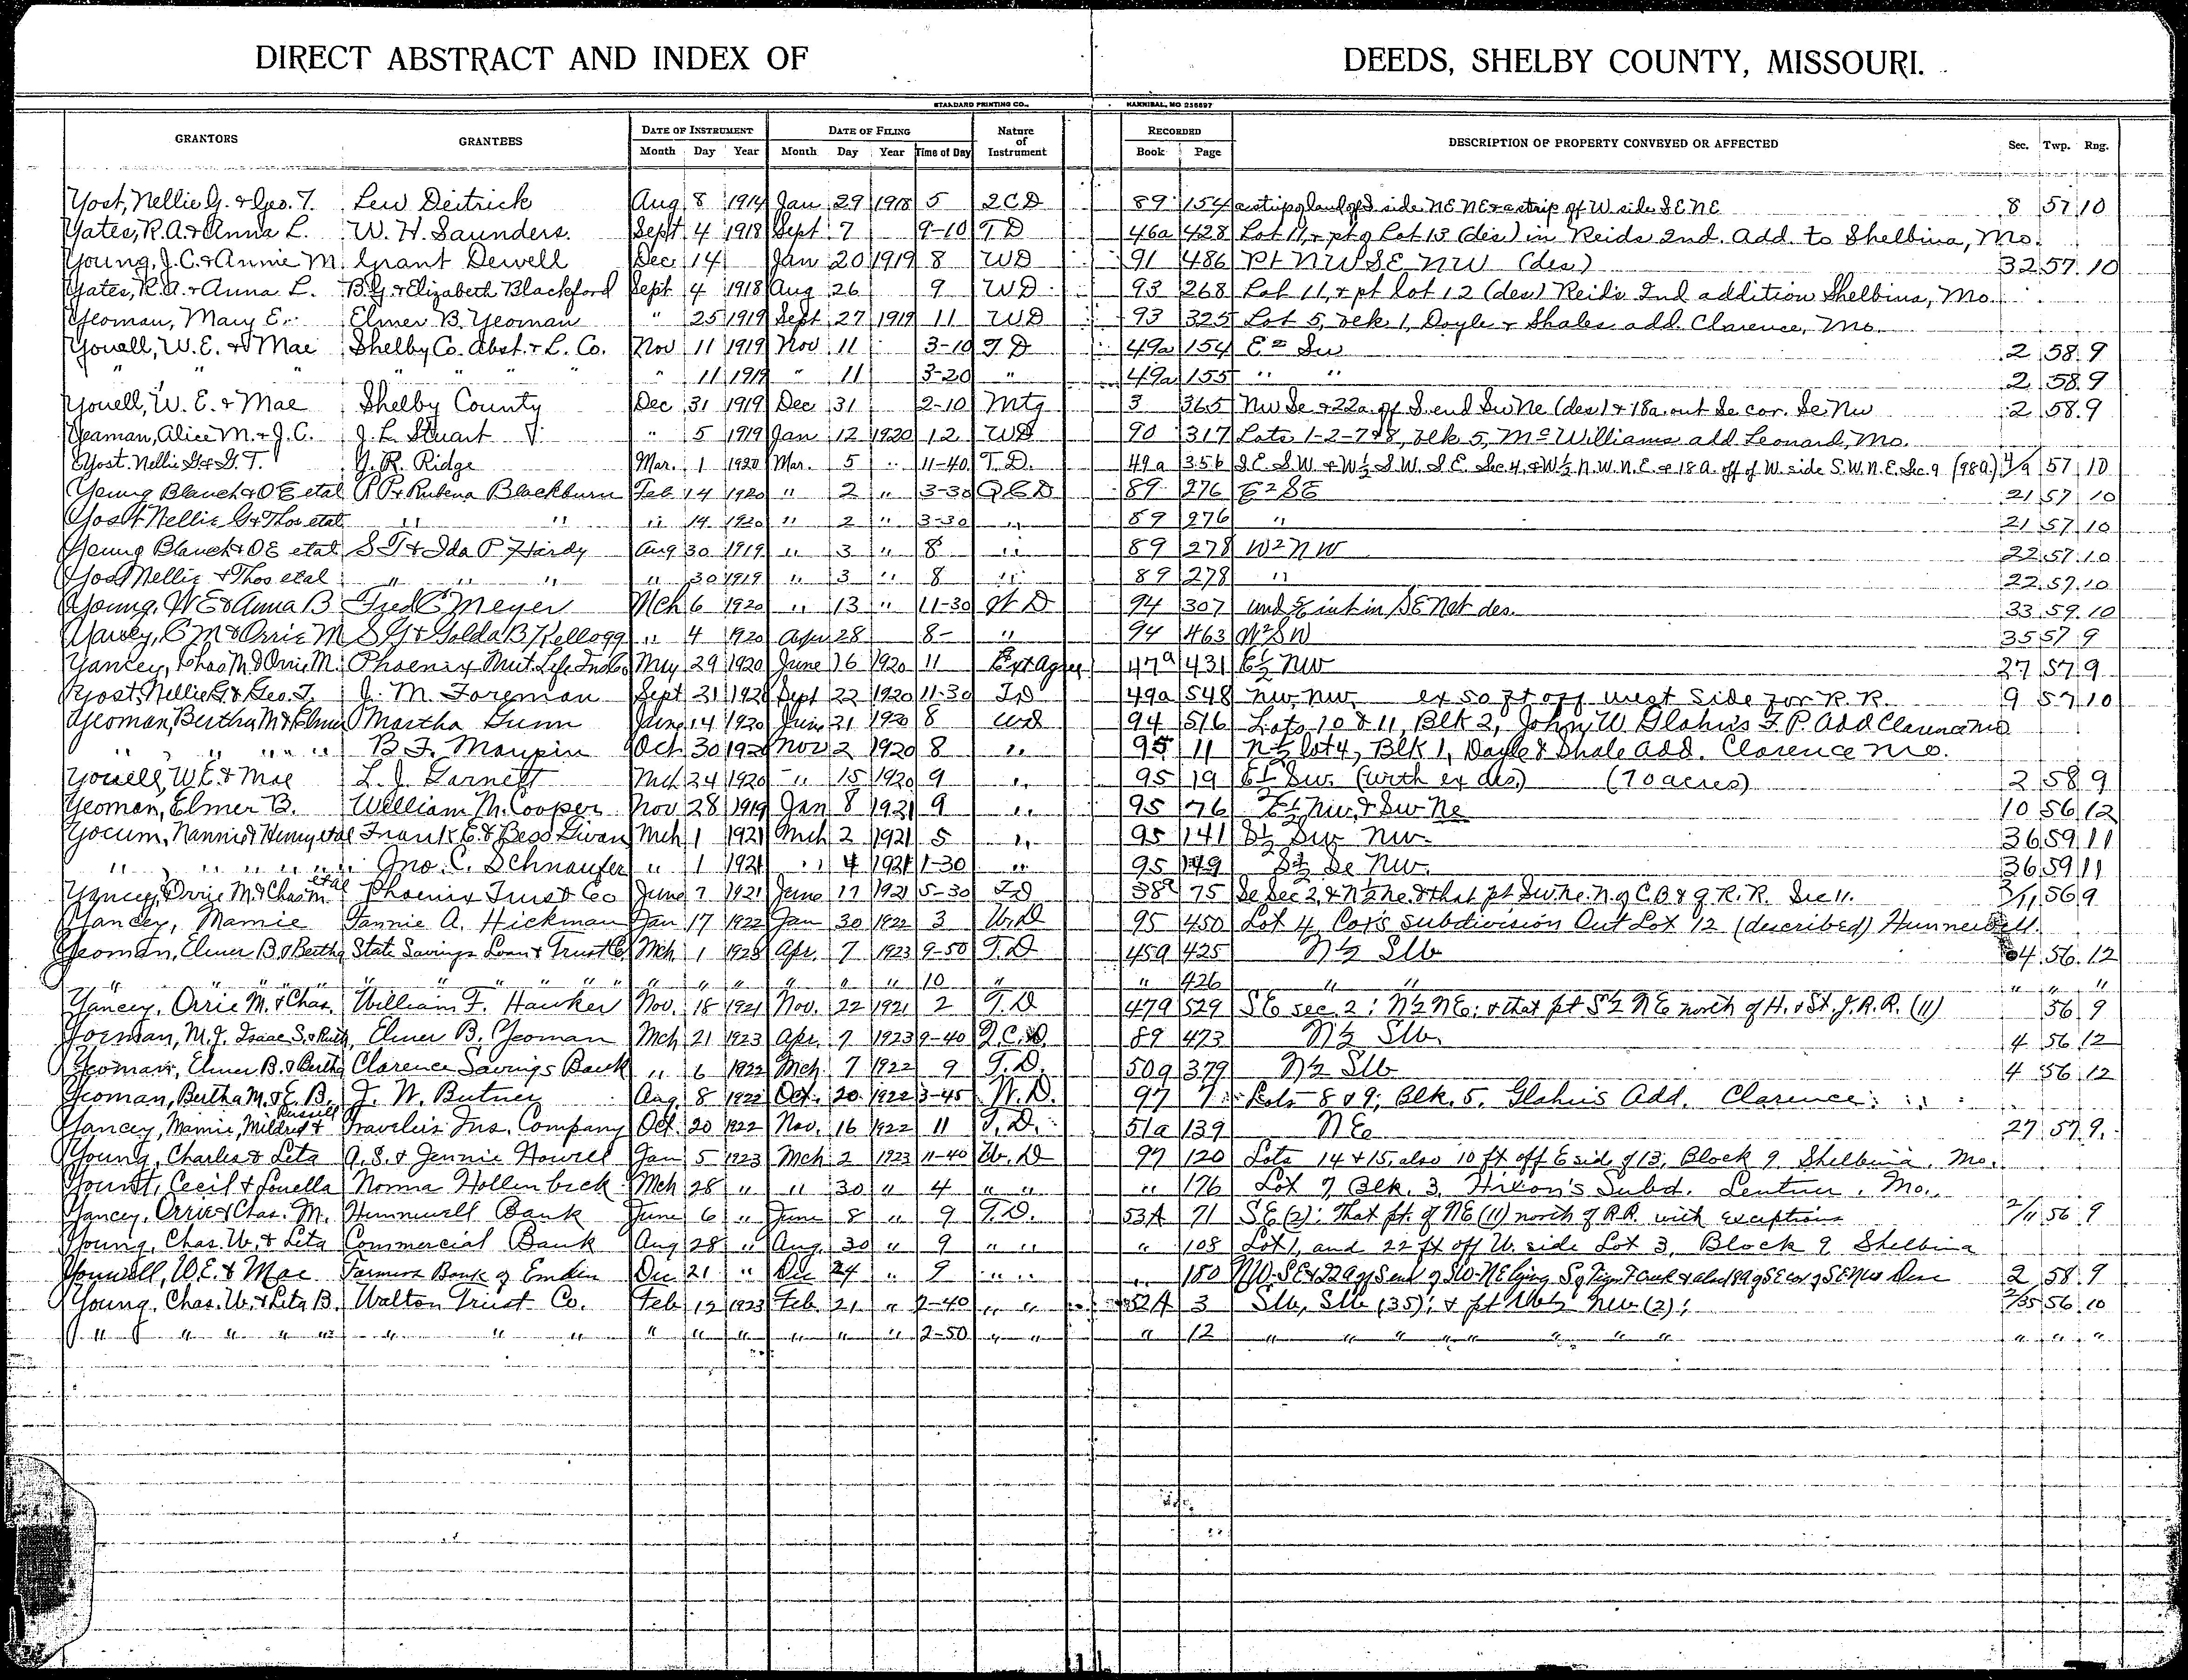 DIRECT ABSTRACT AND INDEX OF DEEDS, SHELBY COUNTY, MISSOURI.
STANDARD PRINTING CO., HANNIBAL, MO 236697
GRANTORS GRANTEES DATE OF INSTRUMENT DATE OF FILING Nature of Instrument RECORDED DESCRIPTION OF PROPERTY CONVEYED OR AFFECTED Sec. Twp. Rng.
Month Day Year Month Day Year Time of Day Book Page
Yost, Nellie G. & Geo. T. Lew Deitrick Aug 8 1914 Jan 29 1918 5 2CD 89 154 a strip of land off S side NE NE & a strip off W side SE NE 8 57 10
Yates, R.A. & Anna L. W. H. Saunders. Sept 4 1918 Sept 7 9-10 TD 46a 428 Lot 11, & pt of Lot 13 (des) in Reids 2nd. Add. to Shelbina, Mo.
Young, J.C. & Annie M. Grant Dewell Dec 14 Jan 20 1919 8 WD 91 486 Pt NW SE NW (des) 32 57 10
Yates, R.A. & Anna L. B.G. & Elizabeth Blackford Sept 4 1918 Aug 26 9 WD 93 268 Lot 11, & pt lot 12 (des) Reid's 2nd addition Shelbina, Mo.
Yeoman, Mary E. Elmer B. Yeoman " 25 1919 Sept 27 1919 11 WD 93 325 Lot 5, blk 1, Doyle & Shales add. Clarence, Mo.
Youell, W.E. & Mae Shelby Co. Abst. & L. Co. Nov 11 1919 Nov 11 3-10 T D 49a 154 E2 Sw 2 58 9
" " " " " " " " 11 1919 " 11 3-20 " 49a 155 " " 2 58 9
Youell, W. E. & Mae Shelby County Dec 31 1919 Dec 31 2-10 Mtg 3 365 Nw Se & 22a. off S. end Sw Ne (des) & 18a. out Se cor. Se Nw 2 58 9
Yeaman, Alice M. & J.C. J. L. Stuart " 5 1919 Jan 12 1920 12 WD 90 317 Lots 1-2-7&8, blk 5, McWilliams add Leonard, Mo.
Yost Nellie G & G. T. J. R. Ridge Mar. 1 1920 Mar. 5 " 11-40 T.D. 49a 356 S.E. S.W. & W½ S.W. S.E. Sec. 4, & W½ N.W. N.E. & 18 A. off of W. side S.W. N.E. Sec. 9 (98a.) 4/9 57 10
Young Blanch & O E etal P P & Rubena Blackburn Feb 14 1920 " 2 " 3-30 Q C D 89 276 E2 SE 21 57 10
Yost Nellie G & Thos etal " " " 14 1920 " 2 " 3-30 " 89 276 " 21 57 10
Young Blanch & O E etal S T & Ida P Hardy Aug 30 1919 " 3 " 8 " 89 278 W2 NW 22 57 10
Yost Nellie & Thos etal " " " " 30 1919 " 3 " 8 " 89 278 " 22 57 10
Young, W E & Anna B Fred C Meyer Mch 6 1920 " 13 " 11-30 W D 94 307 und int in SE Net des. 33 59 10
Yancey, C M & Orrie M S G & Golda B Kellogg " 4 1920 Apr 28 8- " 94 463 W2 SW 35 57 9
Yancey, Chas M. & Orrie M. Phoenix Mut. Life Ins Co May 29 1920 June 16 1920 11 Ext Agree 47a 431 E½ NW 27 57 9
Yost, Nellie G. & Geo. T. J. M. Foreman Sept 21 1920 Sept 22 1920 11-30 TD 49a 548 NW, NW ex 50 ft off west Side for R.R. 9 57 10
Yeoman, Bertha M & Elmer Martha Gunn June 14 1920 June 21 1920 8 WD 94 516 Lots 10 & 11, Blk 2, John W Glahn's F. P. Add Clarence Mo
" " " " " B. F. Maupin Oct 30 1920 Nov 2 1920 8 " 95 11 N½ lot 4, Blk 1, Doyle & Shale add. Clarence Mo.
Youell, W.E. & Mae L. J. Garnett Mch 24 1920 " 15 1920 9 " 95 19 E½ Sw. (with ex des) (70 acres) 2 58 9
Yeoman, Elmer B. William M. Cooper Nov 28 1919 Jan 8 1921 9 " 95 76 E½ Nw, & Sw Ne 10 56 12
Yocum, Nannie & Henry etal Frank E. & Bess Swan Mch 1 1921 Mch 2 1921 5 " 95 141 S½ Sw Nw. 36 59 11
" " " " " Jno. C. Schnaufer " 1 1921 " 4 1921 1-30 " 95 149 S½ Se Nw. 36 59 11
Yancey, Orrie M. & Chas M. etal Phoenix Trust Co June 7 1921 June 17 1921 5-30 TD 38a 75 Se Sec 2, & N½ Ne. & that pt Sw Ne. N. of C.B. & Q R.R. Sec 11. 2/11 56 9
Yancey, Mamie Fannie A. Hickman Jan 17 1922 Jan 30 1922 3 W.D 95 450 Lot 4, Cox's subdivision Out Lot 12 (described) Hunnewell.
Yeoman, Elmer B. & Bertha State Savings Loan & Trust Co Mch 1 1923 Apr. 7 1923 9-50 T.D 45a 425 N½ SW 4 56 12
" " " " " " " " " " " " " " " " 10 " " 426 " " " " "
Yancey, Orrie M. & Chas. William F. Hawker Nov. 18 1921 Nov. 22 1921 2 T.D 47a 529 SE sec. 2; N½ NE; & that pt S½ NE north of H. & St. J. R.R. (11) 56 9
Yoeman, M.J. Isaac S. & Ruth Elmer B. Yeoman Mch 21 1923 Apr. 7 1923 9-40 Q.C.D. 89 473 N½ SW. 4 56 12
Yeoman, Elmer B. & Bertha Clarence Savings Bank " 6 1922 Mch 7 1922 9 T.D. 50a 379 N½ SW 4 56 12
Yeoman, Bertha M. & E. B. J. W. Butner Aug 8 1922 Oct. 20 1922 3-45 W.D. 97 7 Lots 8 & 9; Blk. 5, Glahn's Add. Clarence
Yancey, Mamie, Mildred & Russell Travelers Ins. Company Oct. 20 1922 Nov. 16 1922 11 T.D. 51a 139 NE 27 57 9
Young, Charles & Leta A. S. & Jennie Howell Jan 5 1923 Mch 2 1923 11-40 W.D 97 120 Lots 14 & 15, also 10 ft off E side of 13, Block 9 Shelbina, Mo.
Yount, Cecil & Louella Norma Hollenbeck Mch 28 " " 30 " 4 " " " 176 Lot 7 Blk. 3, Hixon's Subd. Lentner, Mo.
Yancey, Orrie & Chas. M. Hunnewell Bank June 6 " June 8 " 9 T.D. 53A 71 SE (2); That pt. of NE (11) north of R.R. with exceptions 2/11 56 9
Young, Chas. W. & Leta Commercial Bank Aug 28 " Aug. 30 " 9 " " " 108 Lot 1, and 22 ft off W. side Lot 3, Block 9 Shelbina
Youwell, W.E. & Mae Farmers Bank of Emden Dec 21 " Dec 24 " 9 " " " 180 NW-SE & 22a of S end of SW-NE lying S of 2 58 9
Young, Chas. W. & Leta B. Walton Trust Co. Feb 12 1923 Feb. 21 " 2-40 " " 52A 3 SW, SW (35); & pt W½ NW (2); 2/35 56 10
" " " " " " " " " " " " " " " 2-50 " " " 12 " " " " " " " " " "